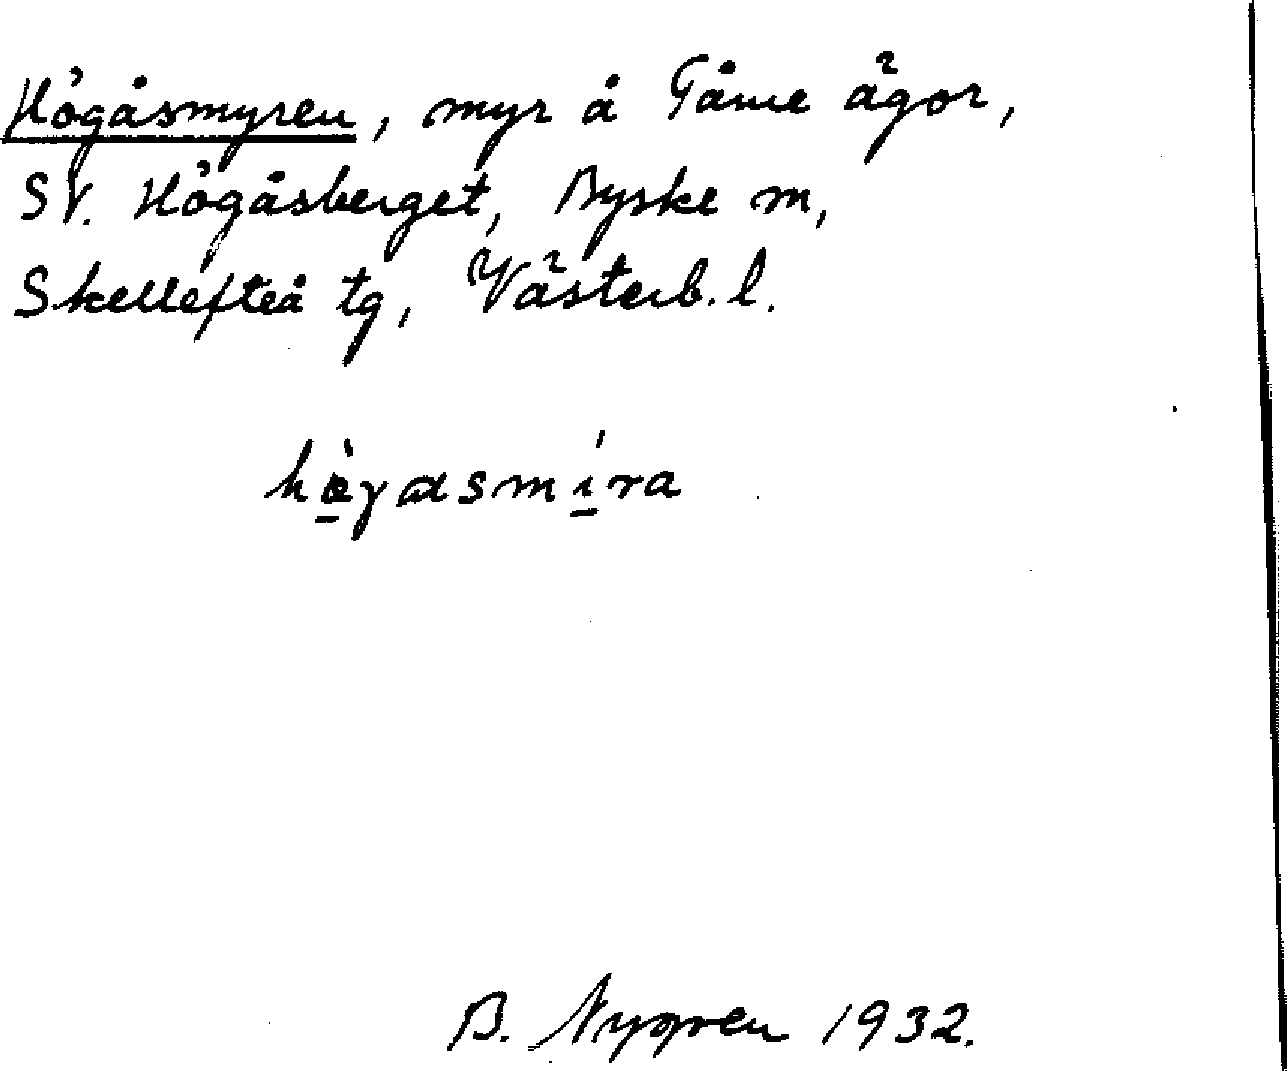 Högåsmyren, myr å Tåme ägor,
SV. Högåsberget, Byske sn,
Skellefteå tg, Västerb. l.
hø̠̀γɑsmí̠ra
B. Nygren 1932.